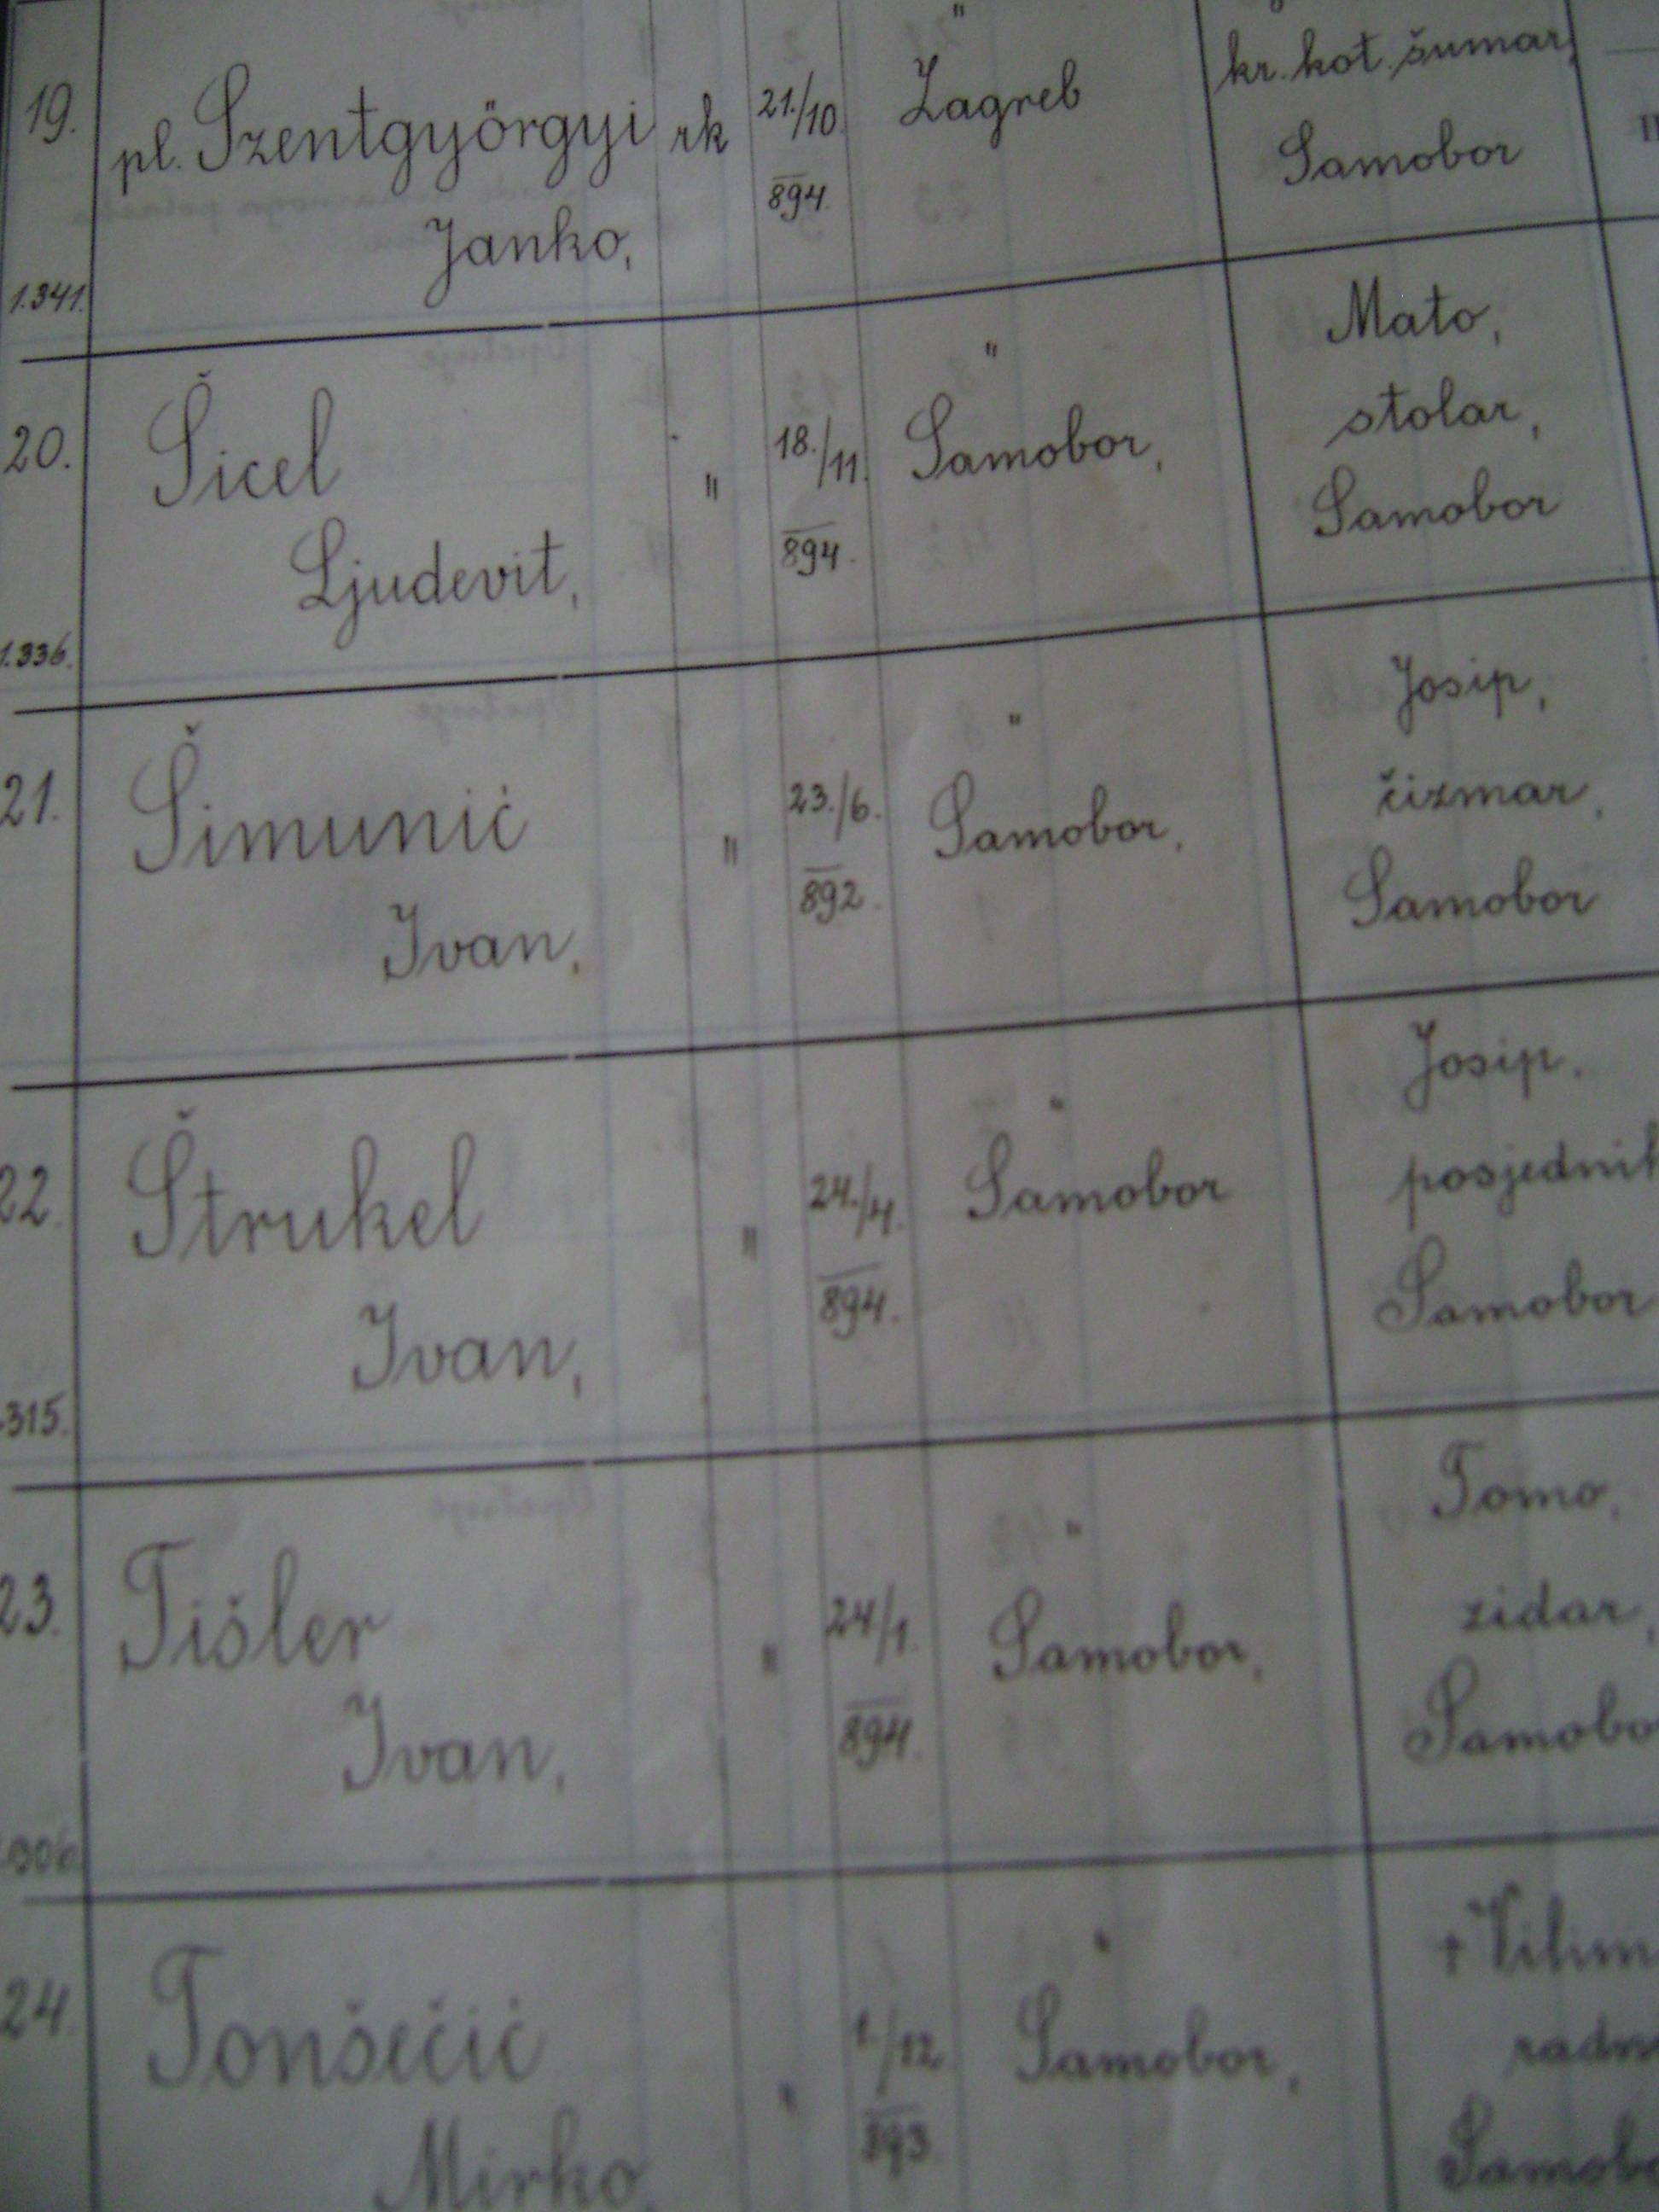 "
19. pl. Szentgyörgyi rk 21./10. Zagreb kr. kot. šumar,
894. Samobor
Janko,
1.341.
" Mato,
20. Šicel " 18./11. Samobor, stolar,
894. Samobor
Ljudevit,
1.336.
" Josip,
21. Šimunić " 23./6. Samobor, čizmar,
892. Samobor
Ivan,
" Josip,
22. Štrukel " 24./4. Samobor posjednik
894. Samobor
Ivan,
315.
" Tomo,
23. Tišler " 24/1. Samobor, zidar,
894. Samobo
Ivan,
" † Vilim
24. Tonšečić " 1./12. Samobor, radn
893. Samobo
Mirko,